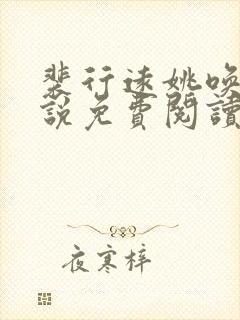 裴行远姚唤
說免費閱讀
夜寒梓